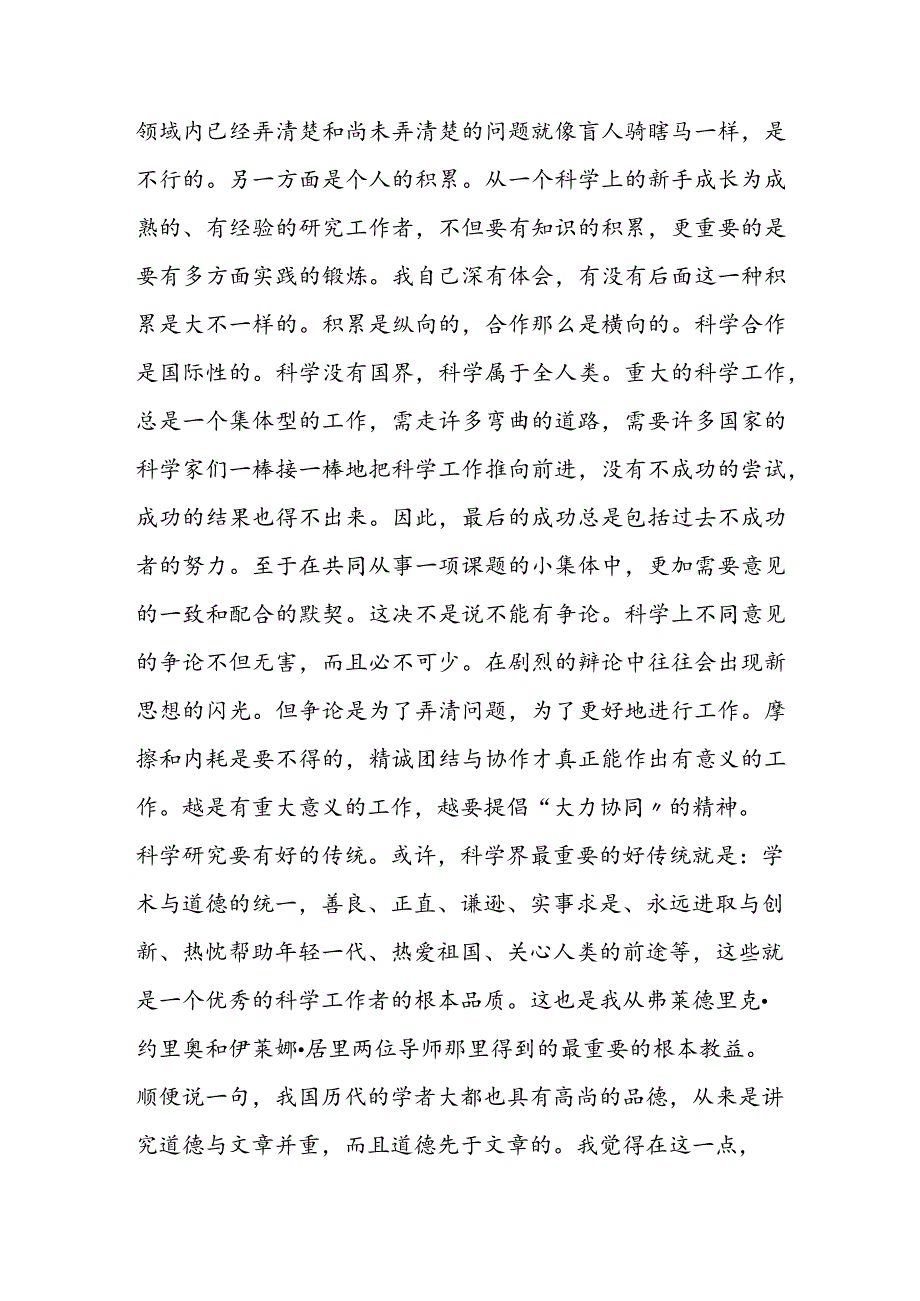 领域内已经弄清楚和尚未弄清楚的问题就像盲人骑瞎马一样，是
不行的。另一方面是个人的积累。从一个科学上的新手成长为成
熟的、有经验的研究工作者，不但要有知识的积累，更重要的是
要有多方面实践的锻炼。我自己深有体会，有没有后面这一种积
累是大不一样的。积累是纵向的，合作那么是横向的。科学合作
是国际性的。科学没有国界，科学属于全人类。重大的科学工作，
总是一个集体型的工作，需走许多弯曲的道路，需要许多国家的
科学家们一棒接一棒地把科学工作推向前进，没有不成功的尝试，
成功的结果也得不出来。因此，最后的成功总是包括过去不成功
者的努力。至于在共同从事一项课题的小集体中，更加需要意见
的一致和配合的默契。这决不是说不能有争论。科学上不同意见
的争论不但无害，而且必不可少。在剧烈的辩论中往往会出现新
思想的闪光。但争论是为了弄清问题，为了更好地进行工作。摩
擦和内耗是要不得的，精诚团结与协作才真正能作出有意义的工
作。越是有重大意义的工作，越要提倡“大力协同〃的精神。
科学研究要有好的传统。或许，科学界最重要的好传统就是：学
术与道德的统一，善良、正直、谦逊、实事求是、永远进取与创
新、热忱帮助年轻一代、热爱祖国、关心人类的前途等，这些就
是一个优秀的科学工作者的根本品质。这也是我从弗莱德里克•
约里奥和伊莱娜•居里两位导师那里得到的最重要的根本教益。
顺便说一句，我国历代的学者大都也具有高尚的品德，从来是讲
究道德与文章并重，而且道德先于文章的。我觉得在这一点，